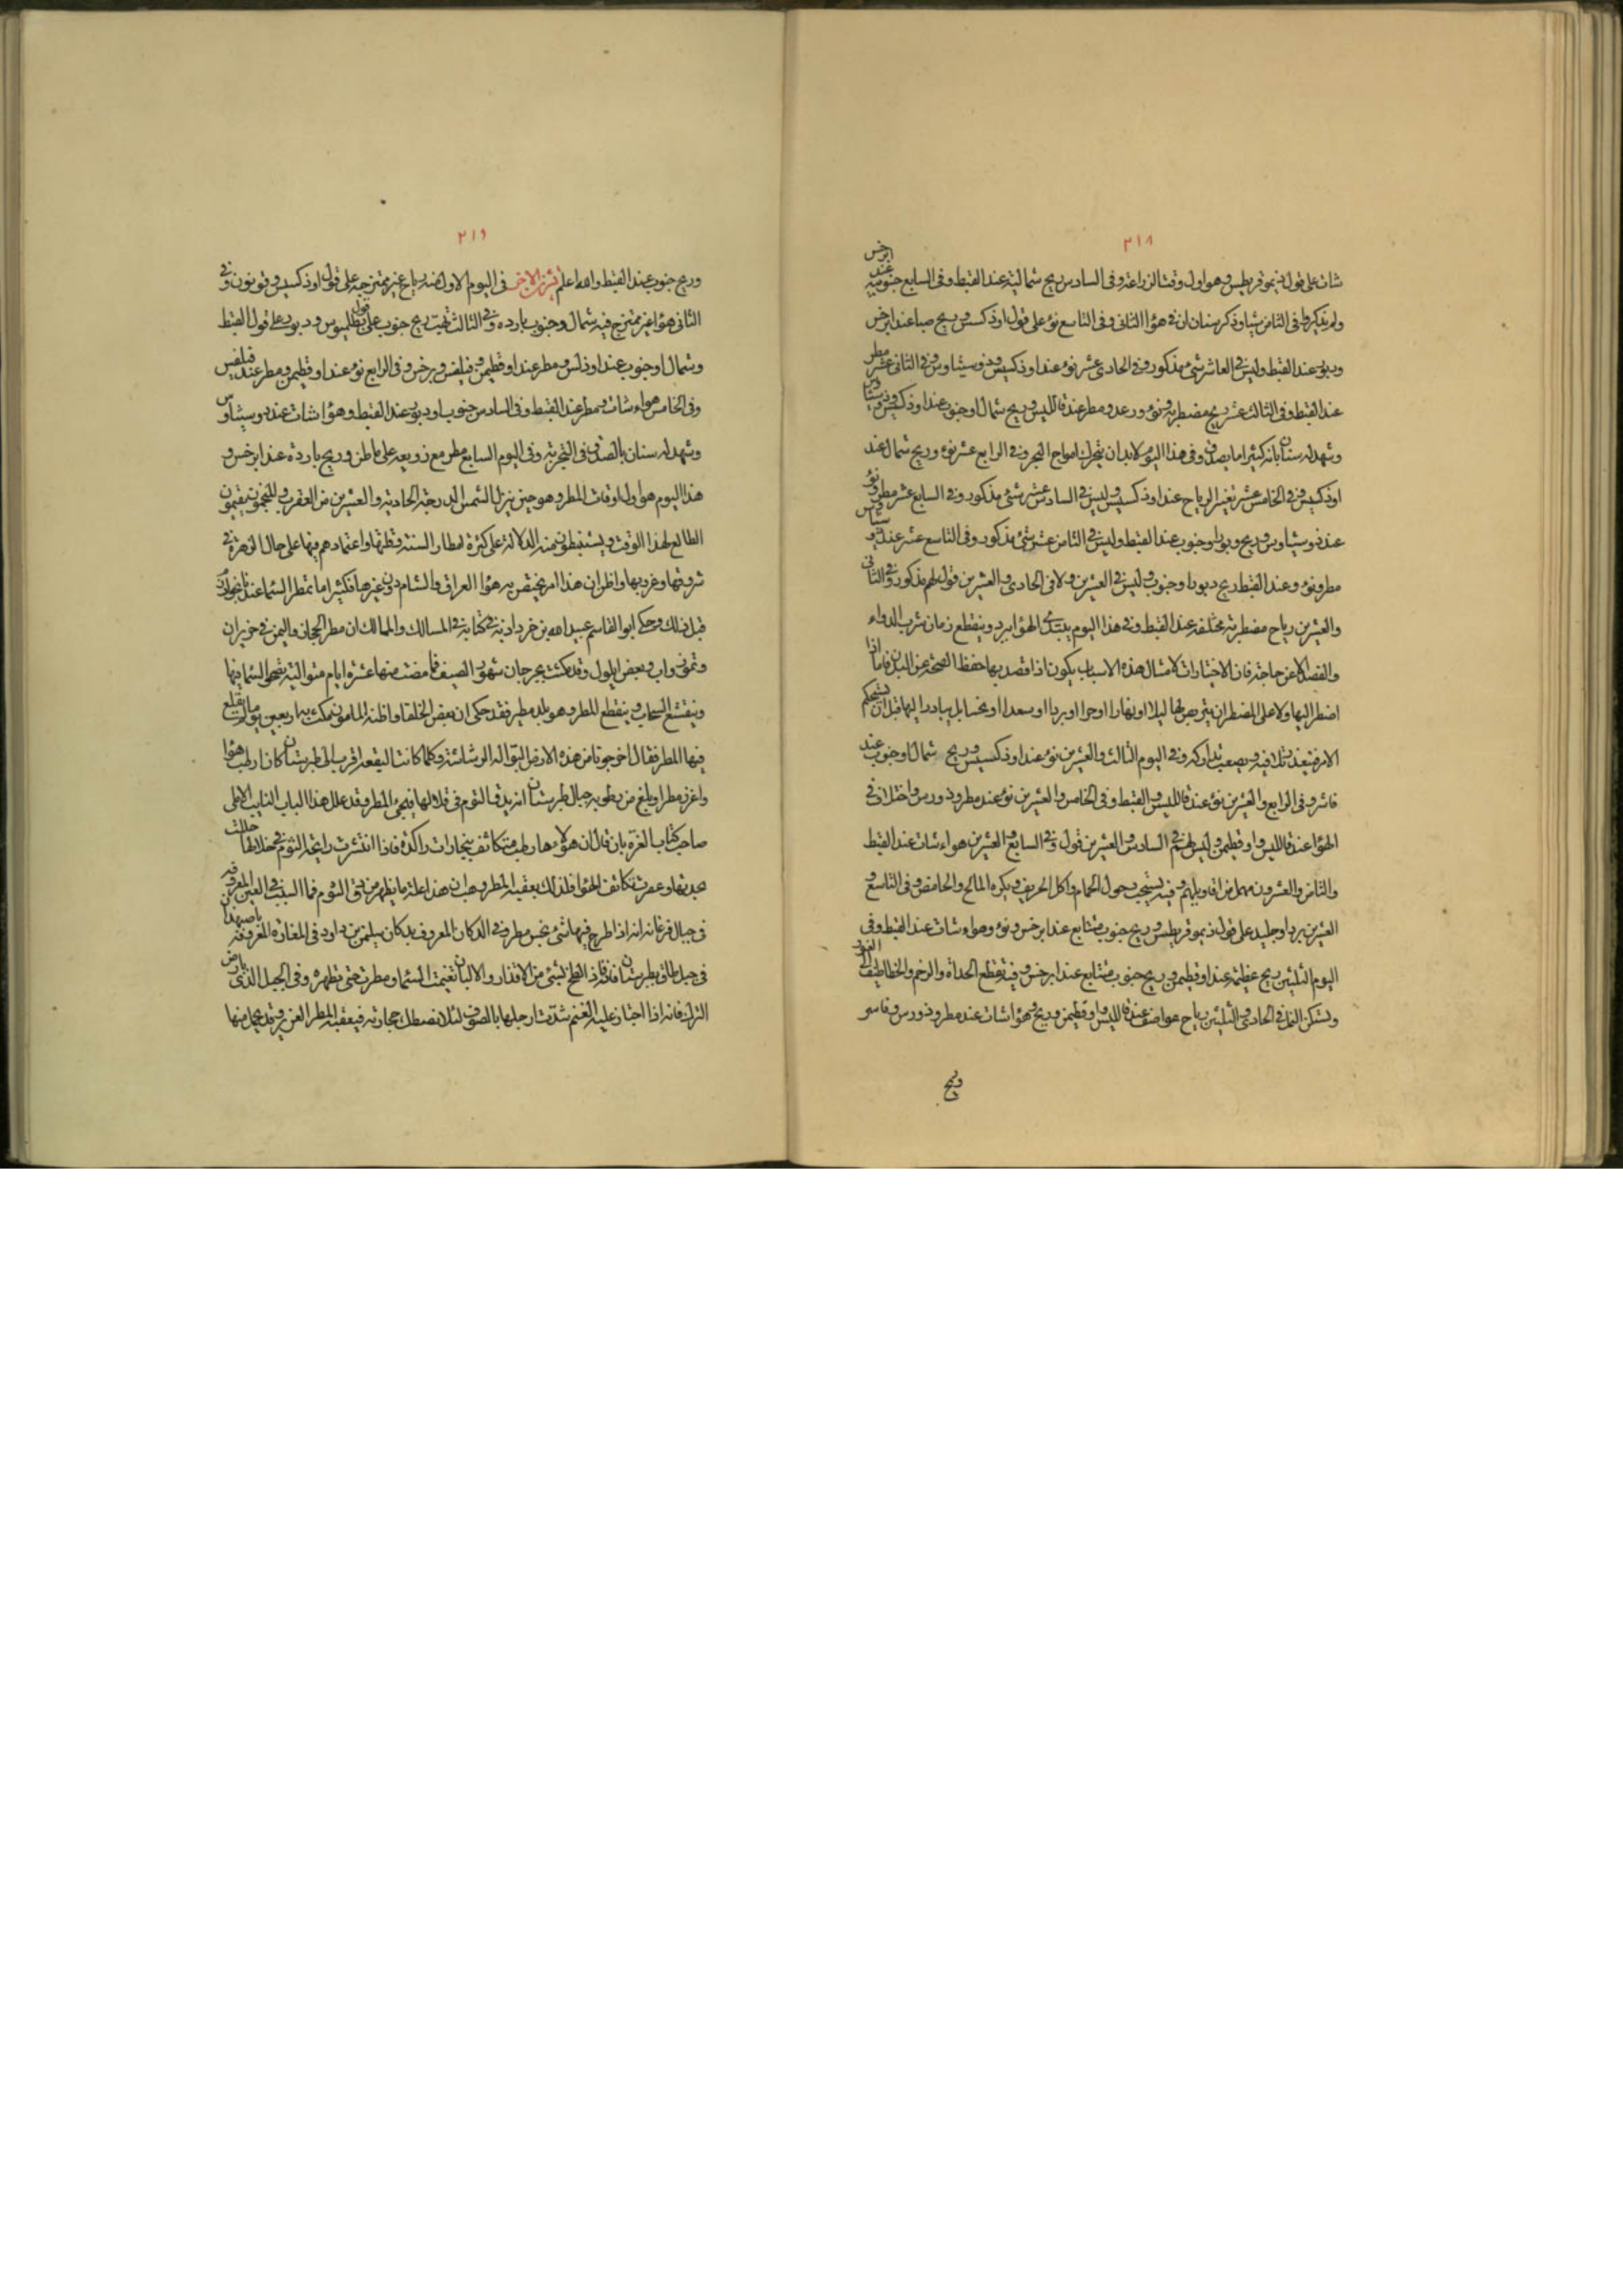 ٢١٨
شات على قول ذيموقريطيس وهو اول وقت الزراعة وفى السادس ريح شمالية عند القبط وفى السابع جنوبية عند ابرخس
ولم يذكروا فى الثامن شيا وذكر سنان ان فى هؤا الثانى وفى التاسع نوء على قول اوذكسس وريح صبا عند ابرخس
ودبور عند القبط وليس فى العاشر شئ مذكور وفى الحادى عشر نوء عند اوذكسيس ودوسيثاوس وفى الثانى عشر مطر
عند القبط وفى الثالث عشر ريح مضطربة ونوء ورعد ومطر عند قالليس وريح شمال او جنوب عند اوذكسيس ودوسيثاوس
وشهد له سنان بانه كثيرا ما يصدق وفى هذا اليوم لا بد ان يتحرك امواج البحر وفى الرابع عشر نوء وريح شمال عند
اوذكسيس وفى الخامس عشر تغير الرياح عند اوذكسيس وليس فى السادس عشر شئ مذكور وفى السابع عشر مطر ونوء
عند دوسيثاوس وريح دبور او جنوب عند القبط وليس فى الثامن عشر شئ مذكور وفى التاسع عشر عند دوسيثاوس
مطر ونوء وعند القبط ريح دبور او جنوب وليس فى العشرين ولا فى الحادى والعشرين قول لهم مذكور وفى الثانى
والعشرين رياح مضطربة مختلفة عند القبط وفى هذا اليوم يبتدئ الهؤا يبرد وينقطع زمان شرب الدواء
والفصد الا عن حاجة فان الاختيارات لامثال هذه الاسباب يكون اذا قصد بها حفظ الصحة من البدن فاما اذا
اضطر اليها ولا على المضطر ان يتربص لها ليلا او نهارا او حرا او بردا او سعدا او نحسا بل يبادر اليها قبل ان يستحكم
الامر فيتعذر تلافيه ويصعب تداركه وفى اليوم الثالث والعشرين نوء عند اوذكسيس وريح شمال او جنوب عند
قاسر وفى الرابع والعشرين نوء عند قالليس والقبط وفى الخامس والعشرين نوء عند مطروذورس واختلاف فى
الهؤا عند قالليس واوقطيمن وليس لهم فى السادس والعشرين قول وفى السابع والعشرين هواء شات عند القبط
والثامن والعشرون مهمل من اقاويلهم وفيه يستحب دخول الحمام واكل الحريف ويكره المالح والحامض وفى التاسع و
العشرين برد او جليد على قول ذيموقريطيس وريح جنوب متتابع عند ابرخس ونوء وهواء شات عند القبط وفى
اليوم الثلثين ريح عظيمة عند اوقطيمن وريح جنوب متتابع عند ابرخس وفيه تقطع الحداة والرخم والخطاطيف الى الغور
وتسكن النمل وفى الحادى والثلثين رياح عواصف عند قالليس واوقطيمن وريح وهؤا شات عند مطروذورس وقاسر
وريح
٢١٩
وريح جنوب عند القبط والله اعلم تشرين الاخر فى اليوم الاول منه رياح غير ممتزجة على قول اوذكسيس وقونون وفى
الثانى هؤا غير ممتزج فيه شمال وجنوب بارده وفى الثالث تهب ريح جنوب على قول بطلميوس ودبور على قول القبط
وشمال او جنوب عند اوذكس ومطر عند اوقطيمن وفيلفس وبرخس وفى الرابع نوء عند اوقطيمن ومطر عند فيلفس
وفى الخامس هواء شات ومطر عند القبط وفى السادس جنوب او دبور عند القبط وهؤا شات عند دوسيثاوس
وشهد له سنان بالصدق فى التجربة وفى اليوم السابع مطر مع زوبعه على ماطن وريح باردة عند ابرخس و
هذا اليوم هو اول اوقات المطر وهو حين ينزل الشمس الدرجة الحادية والعشرين من العقرب والمنجمون يقيمون
الطالع لهذا الوقت ويستنبطون منه الدلالة على كثرة امطار السنة وقلتها واعتمادهم فيها على حال الزهرة فى
شروقها وغروبها واظن ان هذا امر يختص به هؤا العراق والشام دون غيرها فكثيرا ما تمطر السماء عندنا بخوارزم
قبل ذلك وحكى ابو القاسم عبيد الله بن خرداذبه فى كتابه فى المسالك والممالك ان مطر الحجاز واليمن فى حزيران
وتموز واب وبعض ايلول وقد مكثت بجرجان شهور الصيف فما مضت منها عشرة ايام متوالية يتصحو السماء فيها
وينقشع السحاب وينقطع المطر وهو بلد مطير فقد حكى ان بعض الخلفا واظنه المامون مكث بها اربعين يوما لم يقلع
فيها المطر فقال اخرجونا من هذه الارض البوالة الرشاشة وكلما كانت البقعه اقرب الى طبرستان كان ارطب هؤا
واغزر مطرا وبلغ من رطوبه جبال طبرستان انه يدق الثوم فى قلالها فيجئ المطر وقد علل هذا الباب النايب الاملى
صاحب كتاب الغرة بان قال ان هؤاءها رطب متكاثف ببخارات راكدة فاذا انتشرت رايحة الثوم فى خلالها حللت
بحدتها وعصرت تكاثف الهؤا فلذلك يعقبه المطر وهب ان هذا علة ما يظهر من دق الثوم فما السبب فى العين المعروفه
فى جبال فرغانه انه اذا طرح فيها شئ نجس مطر وفى الدكان المعروف بدكان سليمن بن داود فى المغارة المعروفه باصبهبذان
فى جبل طاق بطبرستان فانه اذا لطخ بشئ من الاقذار والالبان تغيمت السماء ومطرت حتى تطهره وفى الجبل الذى بارض
الترك فانه اذا اجتاز عليه الغنم شدت ارجلها بالصوف لئلا تصطك حجارته فيعقبه المطر الغزير وقد يحمل منها